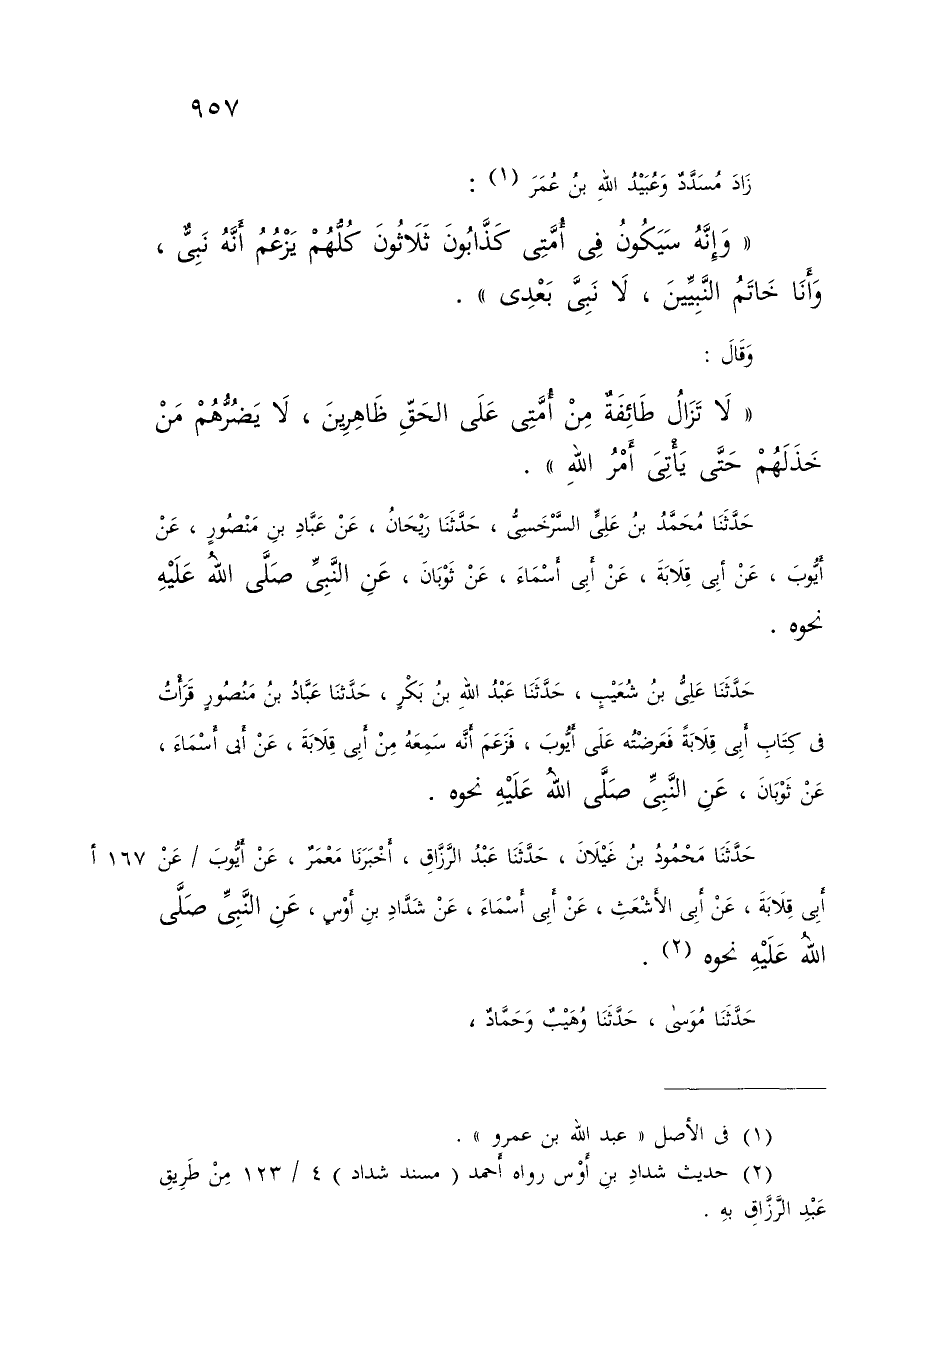 ٩٥٧
زَادَ مُسَدَّدٌ وَعُبَيْدُ اللهِ بنُ عُمَرَ (١) :
« وَإِنَّهُ سَيَكُونُ فِى أُمَّتِى كَذَّابُونَ ثَلَاثُونَ كُلُّهُمْ يَزْعُمُ أَنَّهُ نَبِىٌّ ،
وَأَنَا خَاتَمُ النَّبِيِّينَ ، لَا نَبِىَّ بَعْدِى » .
وَقَالَ :
« لَا تَزَالُ طَائِفَةٌ مِنْ أُمَّتِى عَلَى الحَقِّ ظَاهِرِينَ ، لَا يَضُرُّهُمْ مَنْ
خَذَلَهُمْ حَتَّى يَأْتِىَ أَمْرُ اللهِ » .
حَدَّثَنَا مُحَمَّدُ بنُ عَلِىٍّ السَّرْخَسِىُّ ، حَدَّثَنَا رَيْحَانُ ، عَنْ عَبَّادِ بنِ مَنْصُورٍ ، عَنْ
أَيُّوبَ ، عَنْ أَبِى قِلَابَةَ ، عَنْ أَبِى أَسْمَاءَ ، عَنْ ثَوْبَانَ ، عَنِ النَّبِىِّ صَلَّى اللهُ عَلَيْهِ
نحوه .
حَدَّثَنَا عَلِىُّ بنُ شُعَيْبٍ ، حَدَّثَنَا عَبْدُ اللهِ بنُ بَكْرٍ ، حَدَّثنَا عَبَّادُ بنُ مَنُصُورٍ قَرَأْتُ
فى كِتَابِ أَبِى قِلَابَةً فَعَرضْتُه عَلَى أَيُّوبَ ، فَزَعَمَ أَنَّه سَمِعَهُ مِنْ أَبِى قِلَابَةَ ، عَنْ أَبى أَسْمَاءَ ،
عَنْ ثَوْبَانَ ، عَنِ النَّبِىِّ صَلَّى اللهُ عَلَيْهِ نحوه .
حَدَّثَنَا مَحْمُودُ بنُ غَيْلَانَ ، حَدَّثَنَا عَبْدُ الرَّزَّاقِ ، أَخْبَرَنَا مَعْمَرٌ ، عَنْ أَيُّوبَ / عَنْ ١٦٧ أ
أَبِى قِلَابَةَ ، عَنْ أَبِى الأَشْعَثِ ، عَنْ أَبِى أَسْمَاءَ ، عَنْ شَدَّادِ بنِ أَوْسٍ ، عَنِ النَّبِىِّ صَلَّى
اللهُ عَلَيْهِ نحوه (٢) .
حَدَّثَنَا مُوَسىٰ ، حَدَّثَنَا وُهَيْبٌ وَحَمَّادٌ ،
(١) فى الأصل « عبد الله بن عمرو » .
(٢) حديث شدادِ بنِ أَوْس رواه أَحمد ( مسند شداد ) ٤ / ١٢٣ مِنْ طَرِيقِ
عَبْدِ الرَّزَّاقِ بهِ .